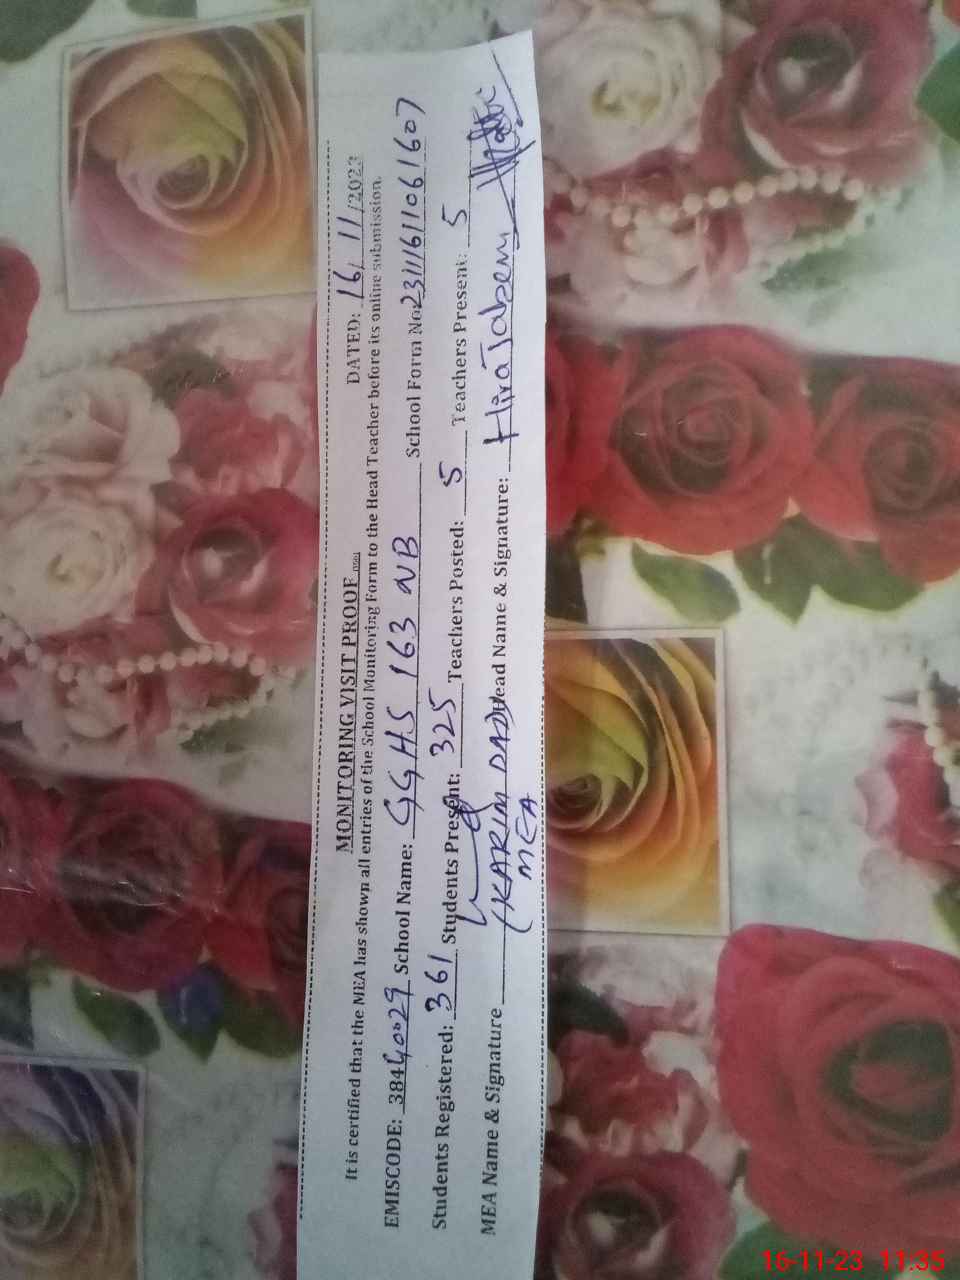 MONITORING VISIT PROOF DATED: 16/11/2023
It is certified that the MEA has shown all entries of the School Monitoring Form to the Head Teacher before its online submission.
EMISCODE: 38440029 School Name: GGHS 163 NB School Form No: 23111611061607
Students Registered: 361 Students Present: 325 Teachers Posted: 5 Teachers Present: 5
MEA Name & Signature (KARIM DAD) Head Name & Signature: Hira Jabeen
MEA
16-11-23 11:35